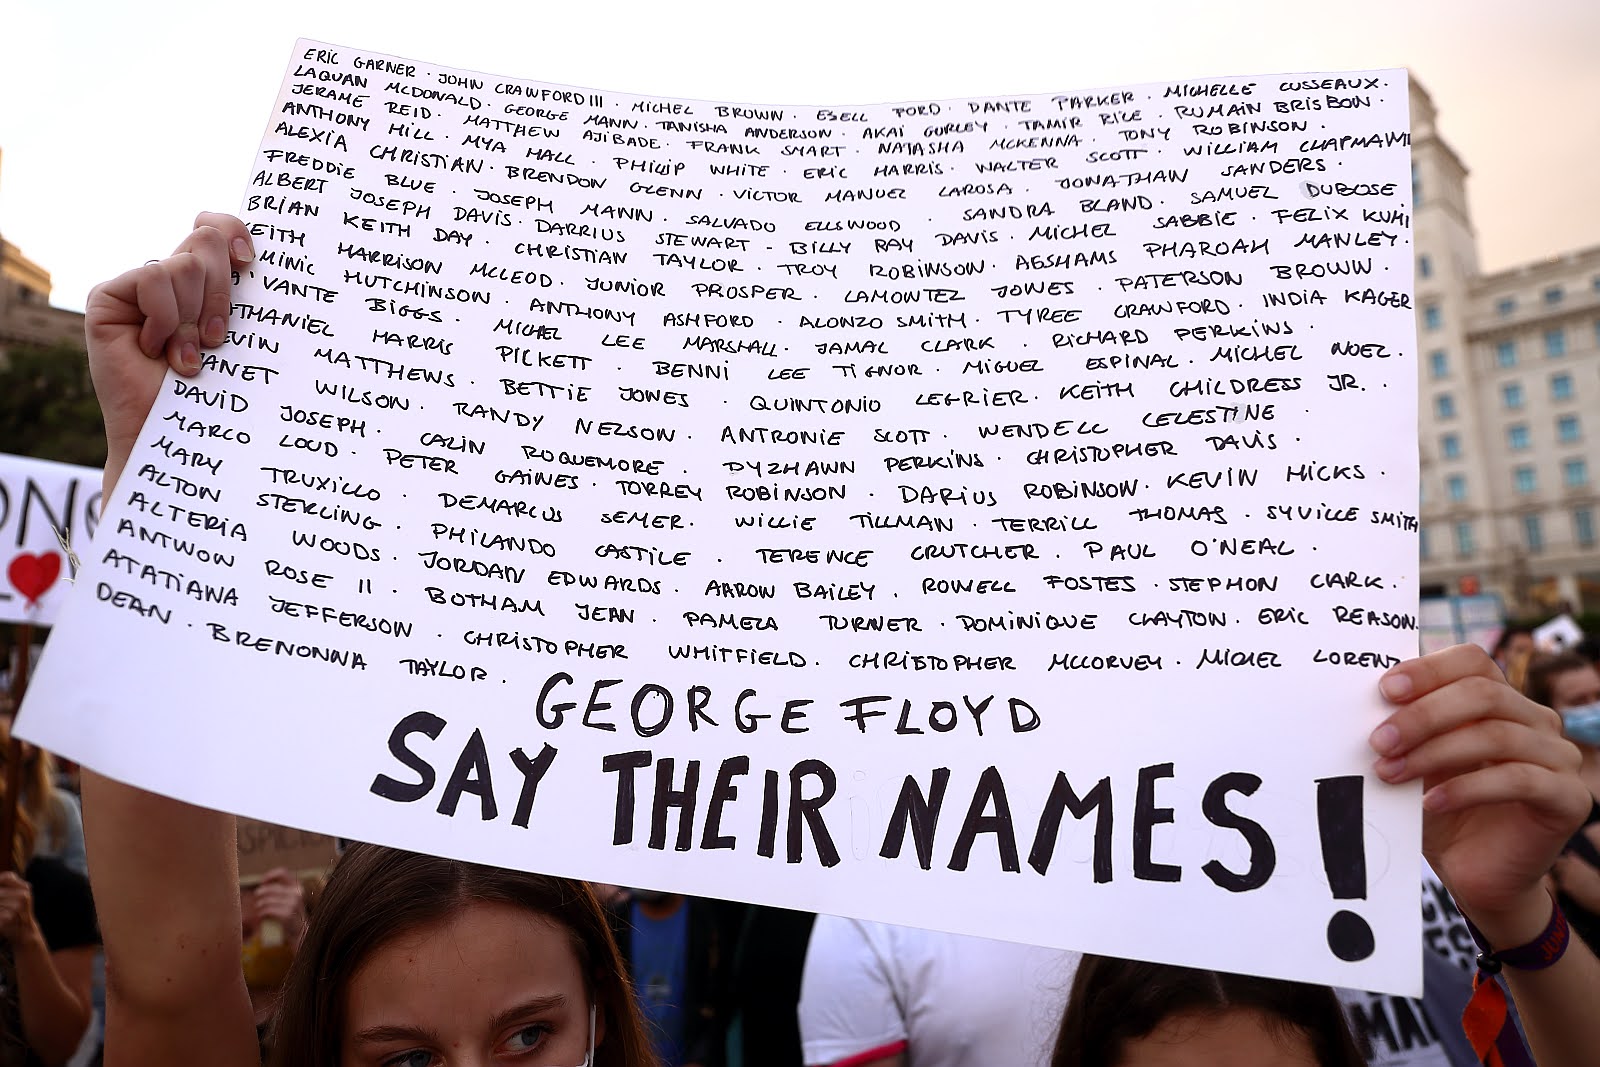 ERIC GARNER · JOHN CRAWFORD III · MICHEL BROWN · EZELL FORD · DANTE PARKER · MICHELLE CUSSEAUX ·
LAQUAN MCDONALD · GEORGE MANN · TANISHA ANDERSON · AKAI GURLEY · TAMIR RICE · RUMAIN BRISBON ·
JERAME REID · MATTHEW AJIBADE · FRANK SMART · NATASHA MCKENNA · TONY ROBINSON ·
ANTHONY HILL · MYA HALL · PHILLIP WHITE · ERIC HARRIS · WALTER SCOTT · WILLIAM CHAPMAN II
ALEXIA CHRISTIAN · BRENDON GLENN · VICTOR MANUEL LAROSA · JONATHAN SANDERS ·
FREDDIE BLUE · JOSEPH MANN · SALVADO ELLSWOOD · SANDRA BLAND · SAMUEL DUBOSE ·
ALBERT JOSEPH DAVIS · DARRIUS STEWART - BILLY RAY DAVIS · MICHEL SABBIE · FELIX KUMI
BRIAN KEITH DAY · CHRISTIAN TAYLOR · TROY ROBINSON · ASSHAMS PHAROAH MANLEY ·
EITH HARRISON MCLEOD · JUNIOR PROSPER · LAMONTEZ JONES · PATERSON BROWN ·
MINIC HUTCHINSON · ANTHONY ASHFORD · ALONZO SMITH · TYREE CRAWFORD · INDIA KAGER
A'VANTE BIGGS · MICHEL LEE MARSHALL · JAMAL CLARK · RICHARD PERKINS ·
ATHANIEL HARRIS PICKETT · BENNI LEE TIGNOR · MIGUEL ESPINAL · MICHEL NOEL ·
EVIN MATTHEWS · BETTIE JONES · QUINTONIO LEGRIER · KEITH CHILDRESS JR. ·
JANET WILSON · RANDY NELSON · ANTRONIE SCOTT · WENDELL CELESTINE ·
DAVID JOSEPH · CALIN ROQUEMORE · DYZHAWN PERKINS · CHRISTOPHER DAVIS ·
MARCO LOUD · PETER GAINES · TORREY ROBINSON · DARIUS ROBINSON · KEVIN HICKS ·
MARY TRUXILLO · DEMARCUS SEMER · WILLIE TILLMAN · TERRILL THOMAS · SYVILLE SMITH
ALTON STERLING · PHILANDO CASTILE · TERENCE CRUTCHER · PAUL O'NEAL ·
ALTERIA WOODS · JORDAN EDWARDS · AARON BAILEY · ROWELL FOSTES · STEPHON CLARK ·
ANTWON ROSE II · BOTHAM JEAN · PAMELA TURNER · DOMINIQUE CLAYTON · ERIC REASON ·
ATATIANA JEFFERSON · CHRISTOPHER WHITFIELD · CHRISTOPHER MCCORVEY · MICHEL LORENZ
DEAN · BRENONNA TAYLOR ·
GEORGE FLOYD
SAY THEIR NAMES!